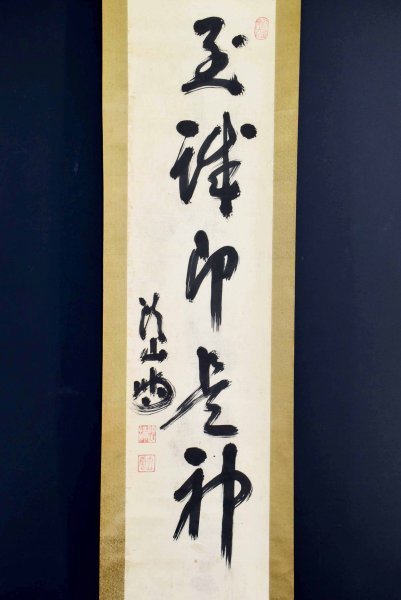 至誠即是神